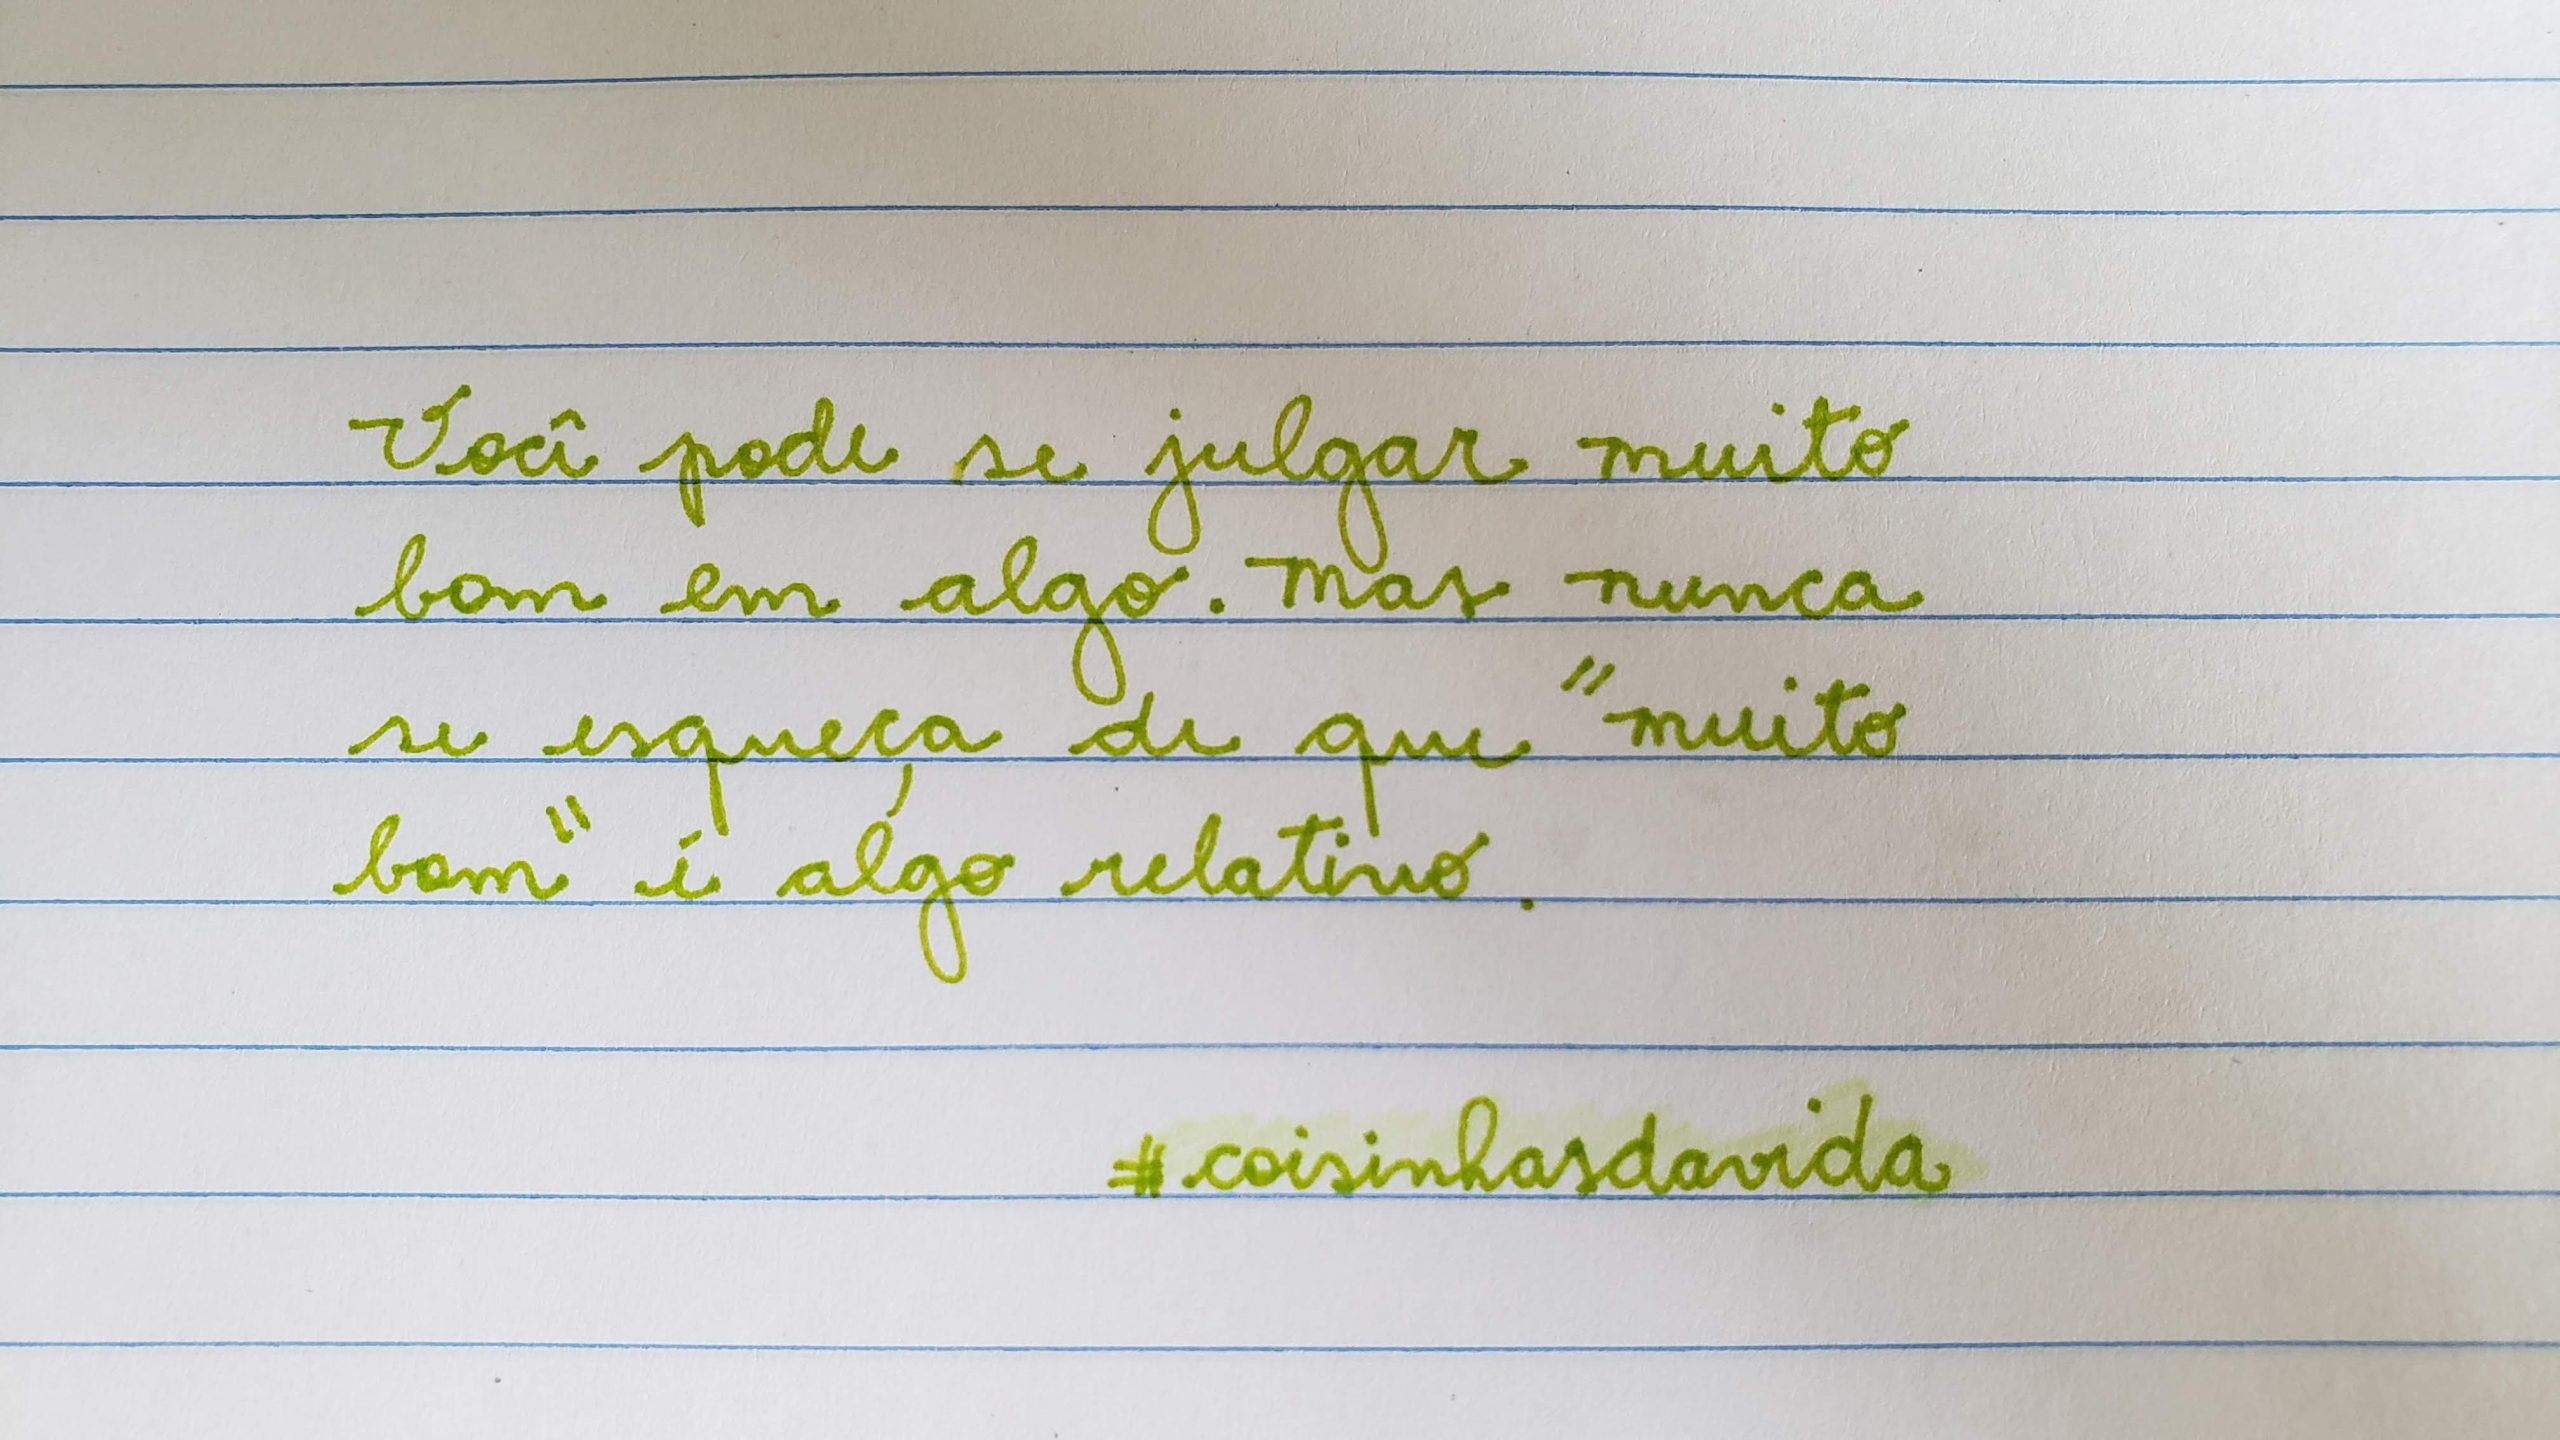 Você pode se julgar muito
bom em algo. Mas nunca
se esqueça de que "muito
bom" é algo relativo.
#coisinhasdavida